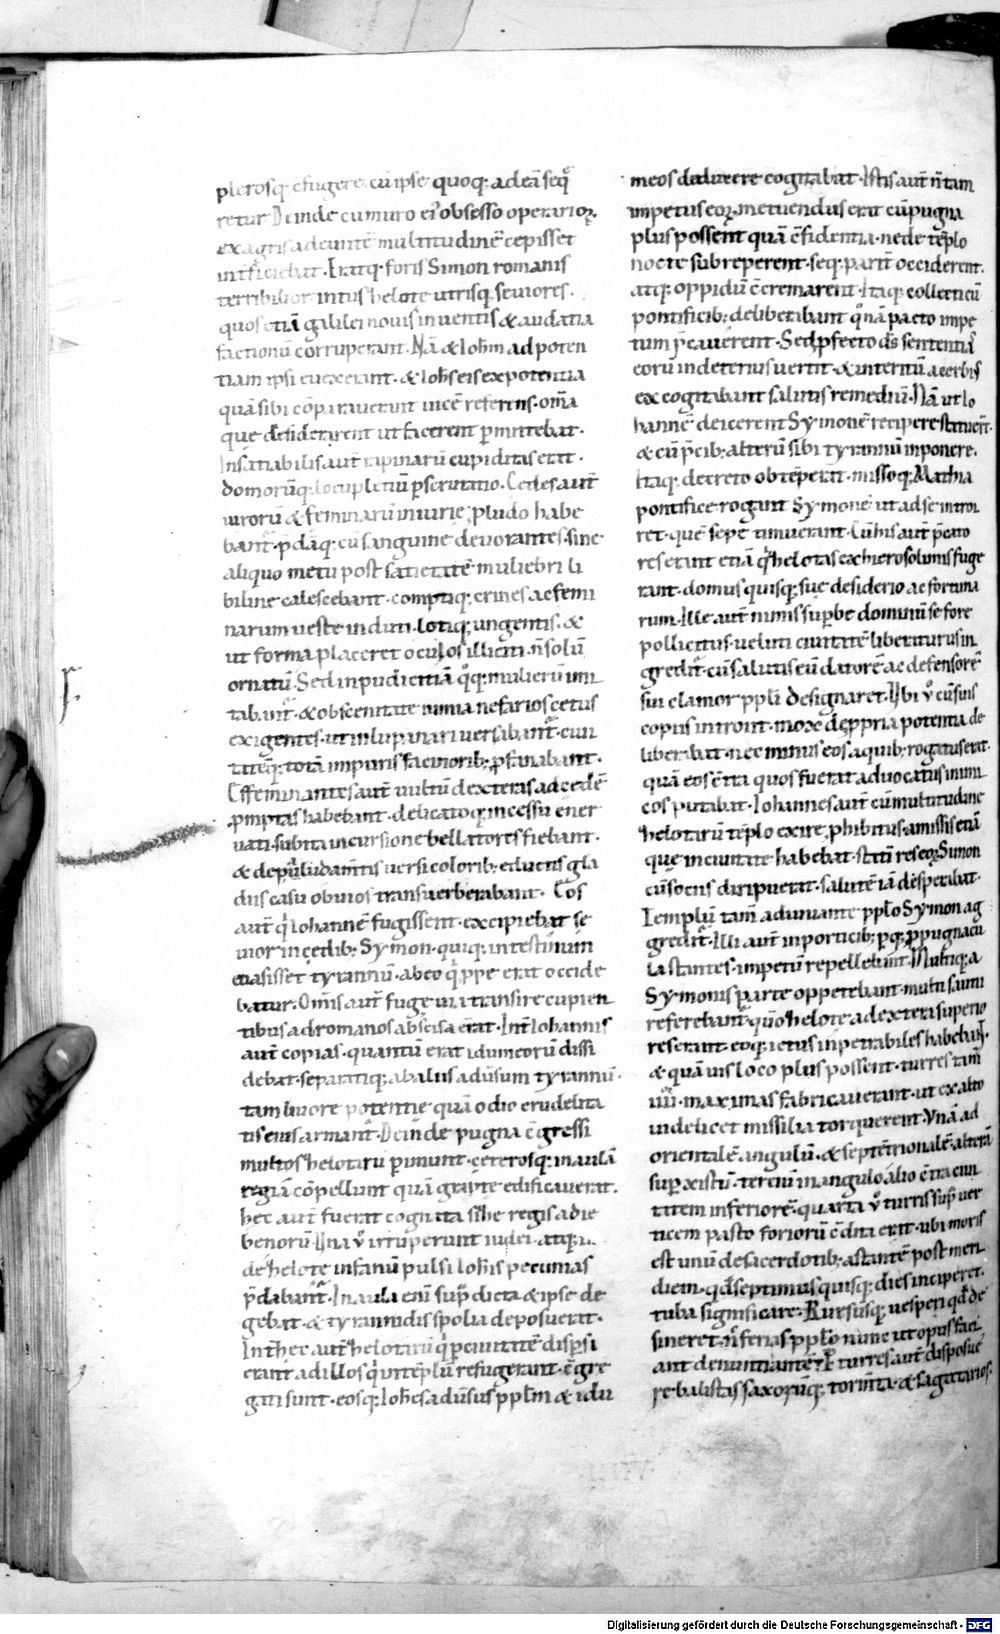 plerosq; effugere cū ipse quoq; ad eā seq̄
retur Deinde cū muro ei' obsesso operarioꝝ.
ex agris adeuntē multitudinē cepisset
int̄ficiebat. Eratq; foris Simon romanis
terribilior intus helote utrisq; seuiores.
quos etiā galilei nouis inuentis & audatia
factionū corruperant. Nā & Ioh̄m ad poten
tiam ipsi euexerant. & Ioh̄s eis ex potentia
quā sibi cōparauerunt uicē referens. om̄a
que desiderarent ut facerent ꝑmittebat.
Insatiabilis aut̄ rapinarū cupiditas erat.
domorūq; locupletiū ꝑscrutatio. Cedes aut̄
uirorū & feminarū iniurie ꝑ ludo habe
bant̄. p̄dāq; cū sanguine deuorantes. sine
aliquo metu post satietatē muliebri li
bidine calescebant. comptiq; crines ac femi
narum ueste induti. lotiq; ungentis. &
ut forma placeret oculos illiciti. n̄ solū
ornatū. Sed inpudicitiā q̊q; mulierū imi
tabant̄. & obscenitate nimia nefarios cetus
exigentes. ut in lupanari uersabant̄. ciui
tatēq; totā impuris facinorib; ꝓfanabant.
Effeminantes aut̄ uultū dexteras ad cedē
ꝓmptas habebant. delicatoq; incessu ener
uati. subita incursione bellatores fiebant.
& depuludam̄tis uersicolorib; eductis gla
diis casu obuios transuerberabant. Eos
aut̄ qͥ Iohannē fugissent. excipiebat se
uior in cedib; Symon. quiq; intestinum
euasisset tyrannū. ab eo qͥ ꝓpe erat occide
batur. Om̄is aut̄ fuge uia transire cupien
tibus ad romanos abscisa erat. Int̄ Iohannis
aut̄ copias. quantū erat idumeorū dissi
debat. separatiq; ab aliis aduersum tyrannū.
tam liuore potentie quā odio crudelita
tis eius armant̄. Deinde pugna c̄gressi
multos helotarū ꝑimunt. ceterosq; in aulā
regiā cōpellunt quā grapte edificauerat.
hec aut̄ fuerat cognata sibe regis adia
benorū. Una ū irruperunt iudei. atq; in
de helote infanū pulsi Ioh̄is pecunias
p̄dabant̄. In aula eni sup̄dicta & ipse de
gebat. & tyrannidis spolia deposuerat.
Int̄ hec aut̄ helotarū qͥ ꝑ ciuitatē disꝑsi
erant ad illos qͥ in tēplū refugerant. c̄gre
gati sunt. eosq; Ioh̄es aduersus ppl̄m & idu
meos deducere cogitabat. Istis aut̄ n̄ tam
impetus eoꝝ. metuendus erat cū pugna
plus possent quā c̄fidentia. ne de tēplo
nocte subreperent. seq; paritī occiderent.
atq; oppidū c̄cremarent. Itaq; collecti cū
pontificib; deliberabant q̊nā pacto impe
tum p̄cauerent. Sed ꝓfecto ds̄ sententiā
eorū in deterius uertit. & internū acerbis
excogitabant salutis remediū. Nā ut Io
hannē deicerent Symonē recipere statuer̄t.
& cū p̄cib; alterū sibi tyrannū inponere.
Itaq; decreto obtēperat. missoq; Mathia
pontifice rogant Symonē ut ad se introi
ret. quē sepe timuerant. Cū his aut̄ p̄cato
res erant etiā qͥ helotas ex hierosolimis fuge
rant. domus quisq; sue desiderio ac fortuna
rum. Ille aut̄ nimis suꝑbe dominū se fore
pollicitus. ueluti ciuitatē liberaturus in
gredit̄. cū salutis eū datorē ac defensorē
sui clamor ppl̄i designaret. Ubi ū cū suis
copiis introiit. mox de ꝓpria potentia de
liberabat. nec minus eos a quib; rogatus erat.
quā eos c̄tra quos fuerat aduocatus inimi
cos putabat. Iohannes aut̄ cū multitudine
helotarū tēplo exire ꝓhibitus. amissis etiā
que in ciuitate habebat. statī res eoꝝ Simon
cū sociis diripuerat. salutē iā desperabat.
Templū tam̄ adiuuante ppl̄o Symon ag
gredit̄. Illi aut̄ in porticib; ꝑq; ꝓpugnacu
la stantes. impetū repellebant. Multiq; a
Symonis parte oppetebant. multi saucii
referebant̄. quō helote ad extera superio
res erant. eoq; ictus inpetrabiles habebant.
& quā uis loco plus possent. turres tam̄
iiii. maximas fabricauerant. ut ex alto
uidelicet missilia torquerent. Vnā ad
orientalē angulū. & septētrionalē. alterā
suꝑ xistū. terciū in angulo alio c̄tra ciui
tatem inferiorē. quarta ū turris suꝑ uer
ticem pastoforiorū c̄dita erat. ubi moris
est unū de sacerdotib; astantē post meri
diem. qd̄ septimus quisq; dies inciperet.
tuba significare. Rursusq; uesperi qd̄ de
sineret. n̄ ferias ppl̄o nunc ut opus faci
ant denuntiantē. P turres aut̄ disposue
re balistas saxorūq; torm̄ta. & sagittarios.